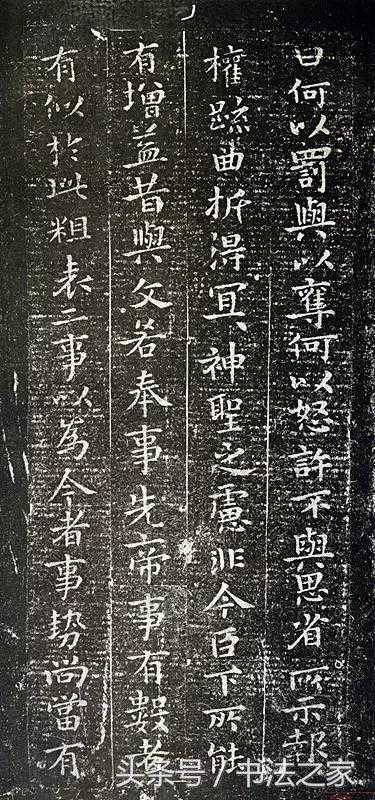 曰何以罰與以奪何以怒許不與思省所示報
權疏曲折得宜神聖之慮非今臣下所能
有增益昔與文若奉事先帝事有數者
有似於此粗表二事以為今者事勢尚當有
头条号 / 书法之家